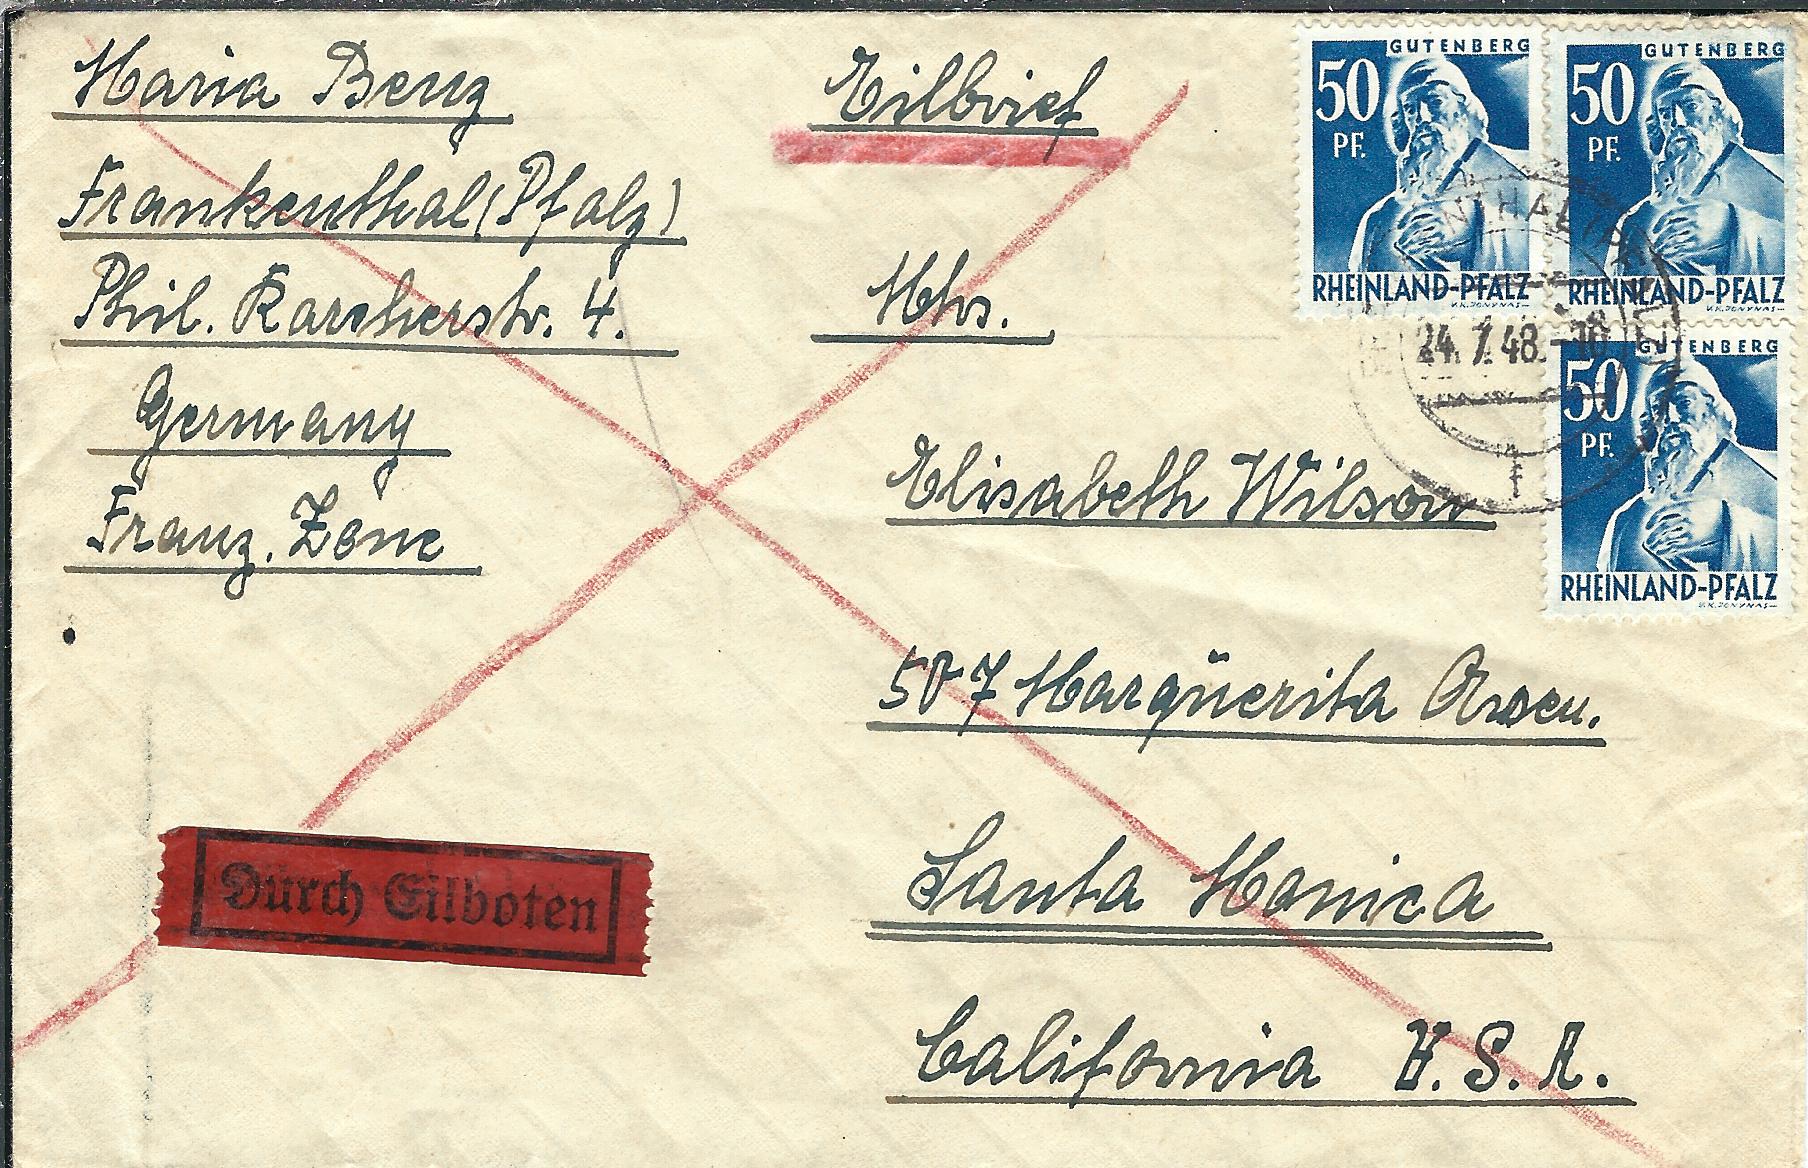 Maria Benz
Frankenthal (Pfalz)
Phil. Karcherstr. 4.
Germany
Franz. Zone
Eilbrief
Mhs.
Elisabeth Wilson
507 Marqüerita Aven.
Santa Monica
California U.S.A.
Durch Eilboten
GUTENBERG
50
PF.
RHEINLAND-PFALZ
V.K.JONYNAS
GUTENBERG
50
PF.
RHEINLAND-PFALZ
V.K.JONYNAS
GUTENBERG
50
PF.
RHEINLAND-PFALZ
V.K.JONYNAS
NTHAL (PFALZ)
24.7.48.-10
f